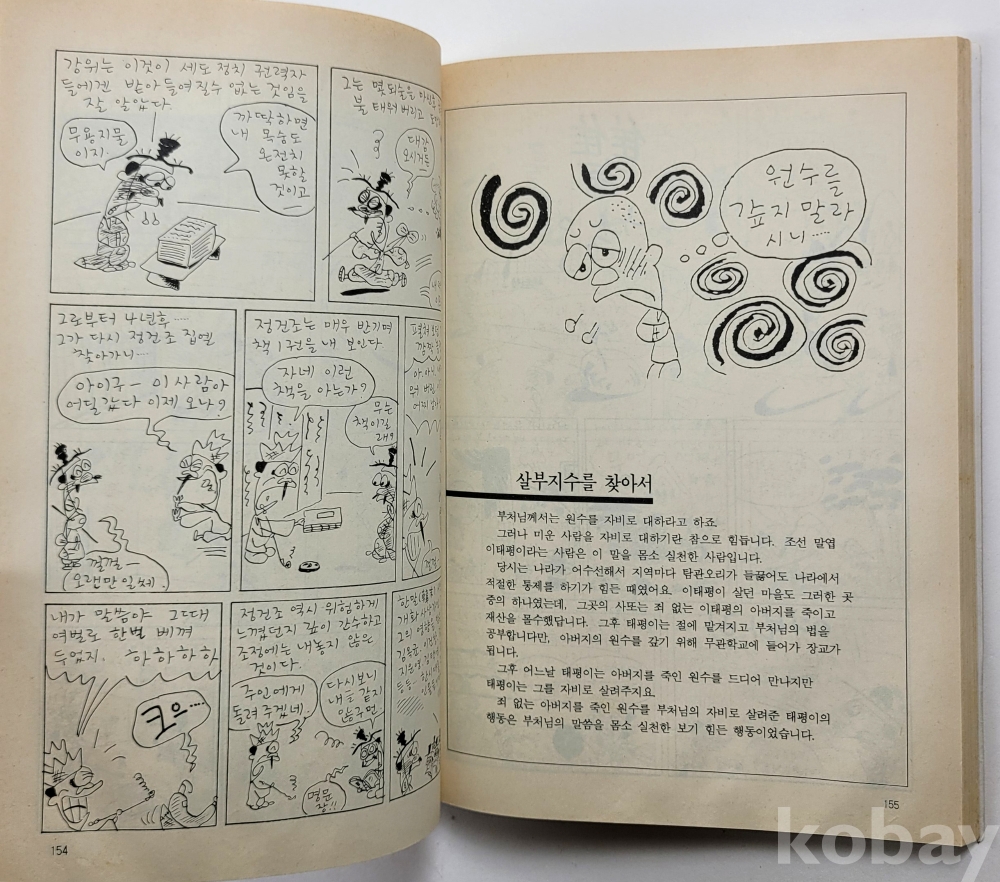 강위는 이것이 세도정치 권력자
들에겐 받아들여질수 없는 것임을
잘 알았다.
무용지물
이지.
까딱하면
내 목숨도
온전치
못할
것이고
그는 몇되술을 마신후
불 태워 버리고
대감
오시거든
그로부터 4년후……
그가 다시 정건조 집엘
찾아가니…
아이구- 이사람아
어딜갔다 이제 오나?
껄껄-
오랜만일세.
정건조는 매우 반기며
책 1권을 내 보인다
자네 이런
책을 아는가?
무슨
책이길
래?
내가 말씀야 그때
여벌로 한벌 베껴
두었지. 하하하하
크으……
정건조 역시 위험하게
느꼈던지 깊이 간수하고
조정에는 내놓지 않은
것이다.
주인에게
돌려 주겠네.
다시보니
내글 같지
않구먼.
명문
장!!
한말
개화사상
그의 영향
김옥균
지운영
등등
154
원수를
갚지 말라
시니……
살부지수를 찾아서
부처님께서는 원수를 자비로 대하라고 하죠.
그러나 미운 사람을 자비로 대하기란 참으로 힘듭니다. 조선 말엽
이태평이라는 사람은 이 말을 몸소 실천한 사람입니다.
당시는 나라가 어수선해서 지역마다 탐관오리가 들끓어도 나라에서
적절한 통제를 하기가 힘든 때였어요. 이태평이 살던 마을도 그러한 곳
중의 하나였는데, 그곳의 사또는 죄 없는 이태평의 아버지를 죽이고
재산을 몰수했답니다. 그후 태평이는 절에 맡겨지고 부처님의 법을
공부합니다만, 아버지의 원수를 갚기 위해 무관학교에 들어가 장교가
됩니다.
그후 어느날 태평이는 아버지를 죽인 원수를 드디어 만나지만
태평이는 그를 자비로 살려주지요.
죄 없는 아버지를 죽인 원수를 부처님의 자비로 살려준 태평이의
행동은 부처님의 말씀을 몸소 실천한 보기 힘든 행동이었습니다.
155
kobay